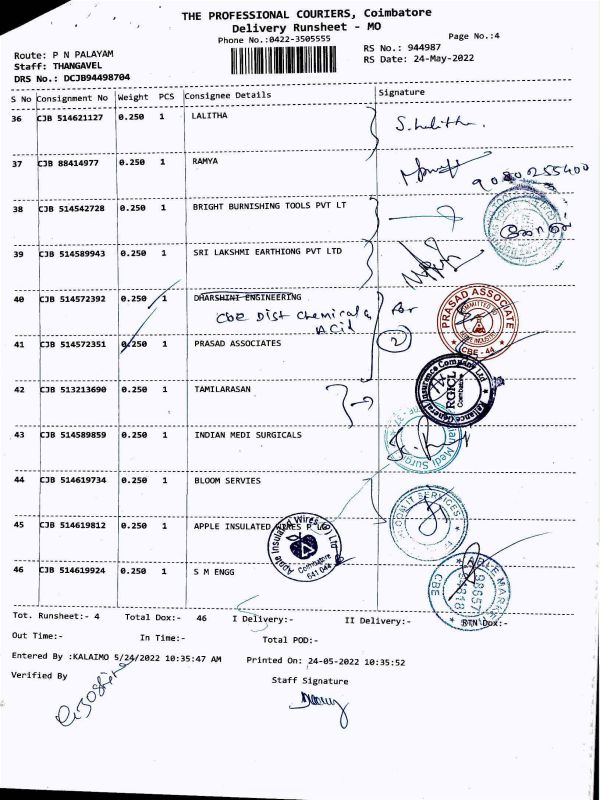 THE PROFESSIONAL COURIERS, Coimbatore
Delivery Runsheet - MO
Phone No.:0422-3505555
Page No.:4
Route: P N PALAYAM
RS No.: 944987
Staff: THANGAVEL
RS Date: 24-May-2022
DRS No.: DCJB94498704
S No Consignment No Weight PCS Consignee Details Signature
36 CJB 514621127 0.250 1 LALITHA S. Lalitha.
37 CJB 88414977 0.250 1 RAMYA
9080255400
38 CJB 514542728 0.250 1 BRIGHT BURNISHING TOOLS PVT LT
39 CJB 514589943 0.250 1 SRI LAKSHMI EARTHIONG PVT LTD
40 CJB 514572392 0.250 1 DHARSHINI ENGINEERING for
CBE Dist Chemical & Acid
PRASAD ASSOCIATE
COMMITTED TO
CBE - 44
41 CJB 514572351 0.250 1 PRASAD ASSOCIATES 2
42 CJB 513213690 0.250 1 TAMILARASAN
Reliance General Insurance Company Ltd
RGICL
Coimbatore
43 CJB 514589859 0.250 1 INDIAN MEDI SURGICALS
44 CJB 514619734 0.250 1 BLOOM SERVIES
BLOOM IT SERVICES
45 CJB 514619812 0.250 1 APPLE INSULATED WIRES P LTD
Apple Insulated Wires (P) Ltd
Coimbatore
641 044
46 CJB 514619924 0.250 1 S M ENGG
CBE
Tot. Runsheet:- 4 Total Dox:- 46 I Delivery:- II Delivery:- RTN Dox:-
Out Time:- In Time:- Total POD:-
Entered By :KALAIMO 5/24/2022 10:35:47 AM Printed On: 24-05-2022 10:35:52
Verified By Staff Signature